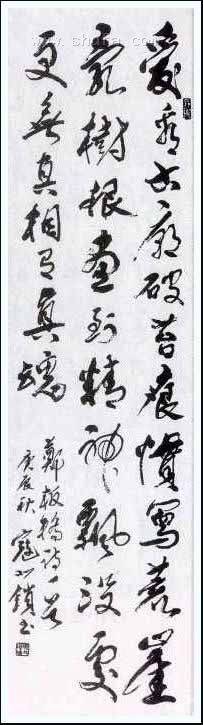 愛看古廟破苔痕慣寫荒崖
亂樹根畫到精神飄沒處
更無真相有真魂
鄭板橋詩一首
庚辰秋 寇